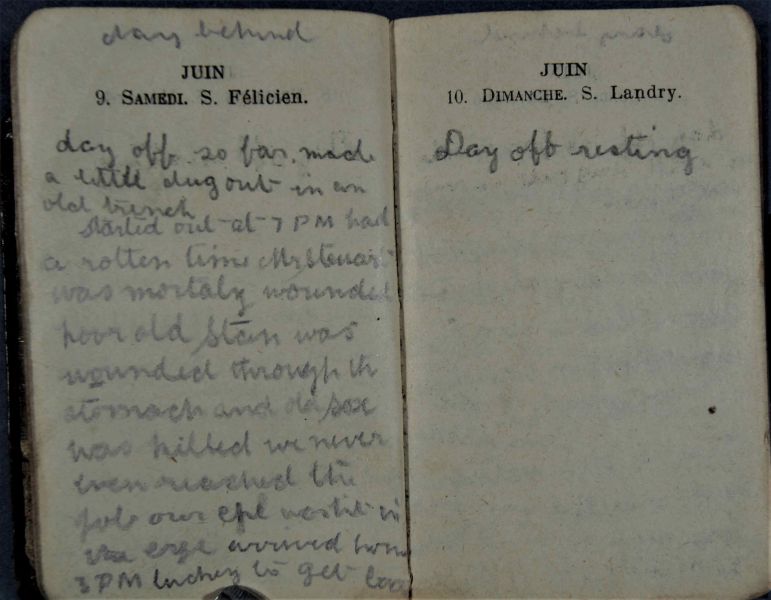 day behind
JUIN
9. SAMEDI. S. Félicien.
day off so far. made
a little dug out in an
old trench
Started out at 7 PM had
a rotten time Mr Stewart
was mortaly wounded
poor old Stan was
wounded through th
stomach and old
was killed we never
even reached the
job our cpl in
arrived home
3 PM luckey to get
JUIN
10. DIMANCHE. S. Landry.
Day off resting